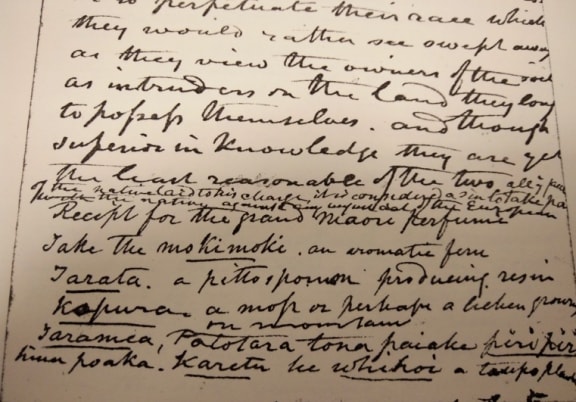 to perpetuate their race which
they would rather see swept away
as they view the owners of the soil
as intruders on the land they long
to possess themselves. and though
superior in Knowledge they are yet
the least reasonable of the two
the native laid to his charge it is considered a sin to take
the native against an of the European
Recipt for the grand maori perfume
Take the mokimoki. an aromatic fern
Tarata. a pittosporum producing resin
Kopura. a moss or perhaps a lichen
on mountain
Taramea, Patotara tona paiake piri piri
hinu poaka. Karetu he whihoi a